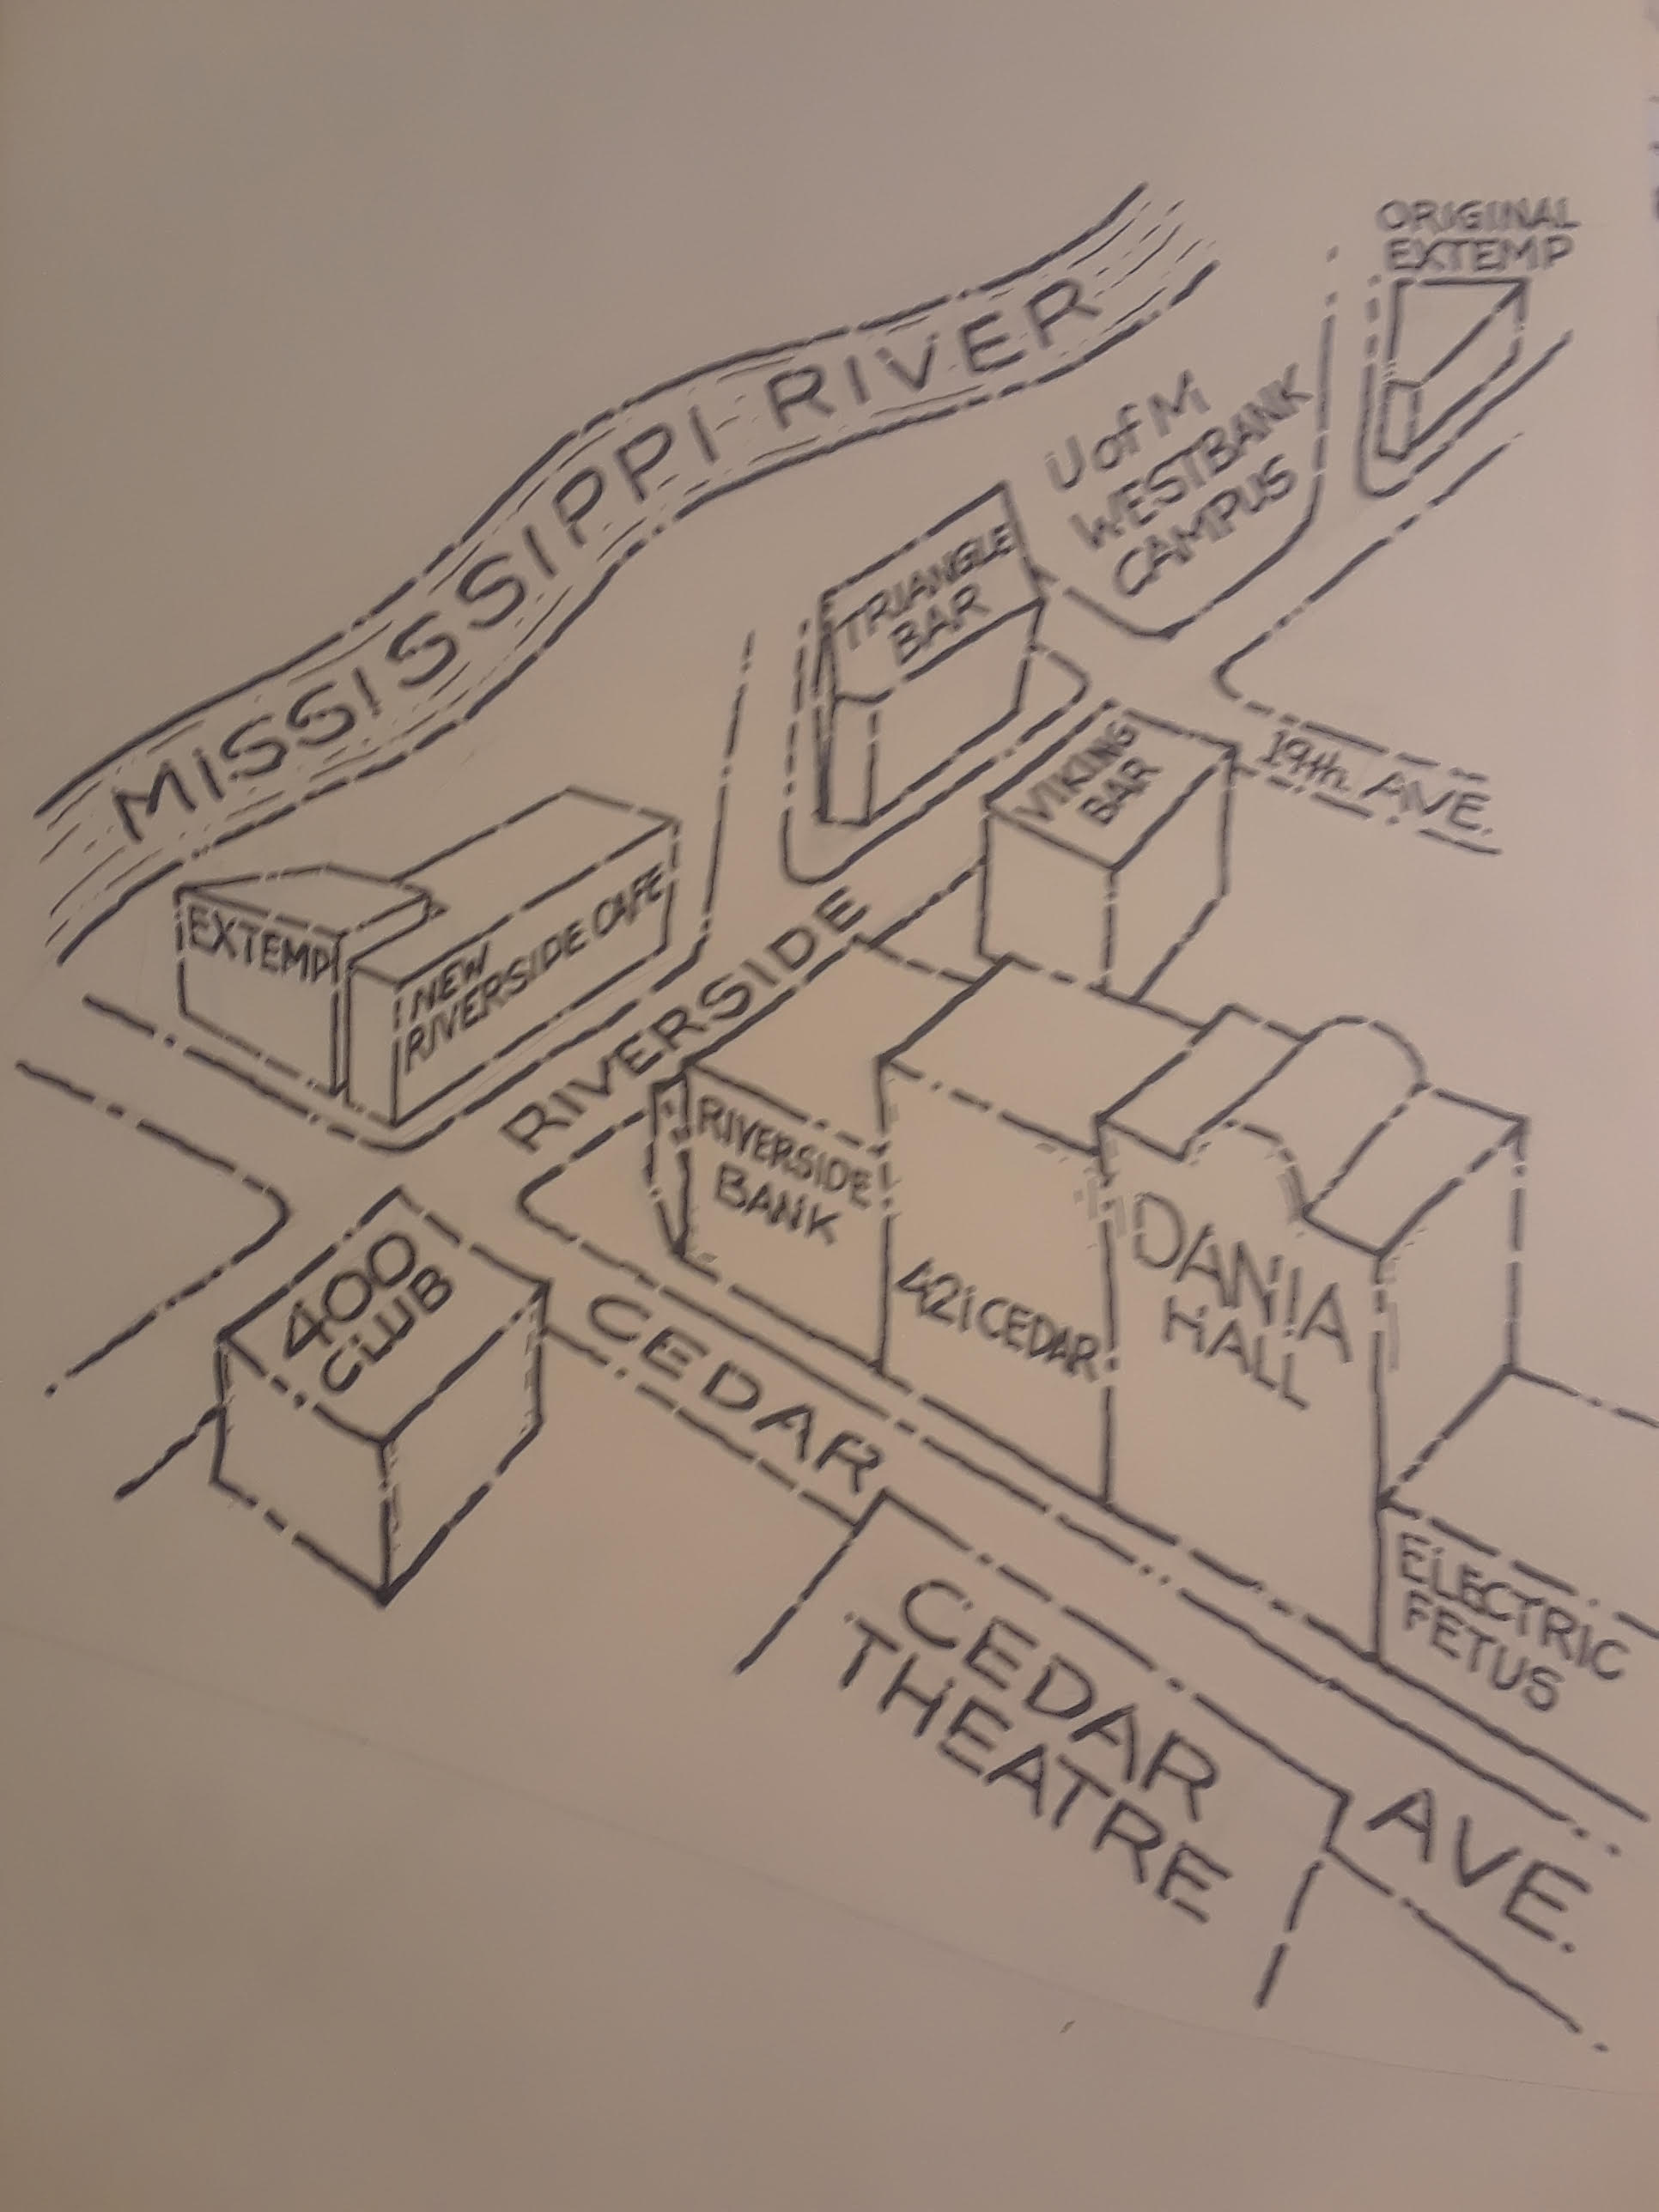 ORIGINAL
EXTEMP
MISSISSIPPI RIVER
U of M
WESTBANK
CAMPUS
TRIANGLE
BAR
VIKING
BAR
19th. AVE.
EXTEMP
NEW
RIVERSIDE CAFE
RIVERSIDE
RIVERSIDE
BANK
421 CEDAR
DANIA
HALL
400
CLUB
CEDAR
ELECTRIC
FETUS
CEDAR
THEATRE
AVE.